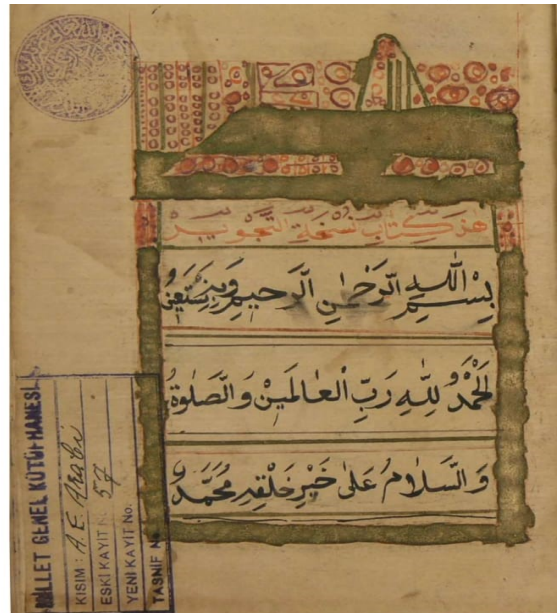 هذ كتاب نسخة التجويد
بِسْمِ اللّٰهِ الرَّحْمٰنِ الرَّحِيمِ وَبِهِ نَسْتَعِينُ
اَلْحَمْدُ لِلّٰهِ رَبِّ الْعَالَمِيْنَ وَالصَّلٰوةُ
وَالسَّلَامُ عَلٰى خَيْرِ خَلْقِهِ مُحَمَّدٍ
MİLLET GENEL KÜTÜPHANESİ
KISIM: A.E. Arabi
ESKİ KAYIT N. 57
YENİ KAYIT No.
TASNİF No